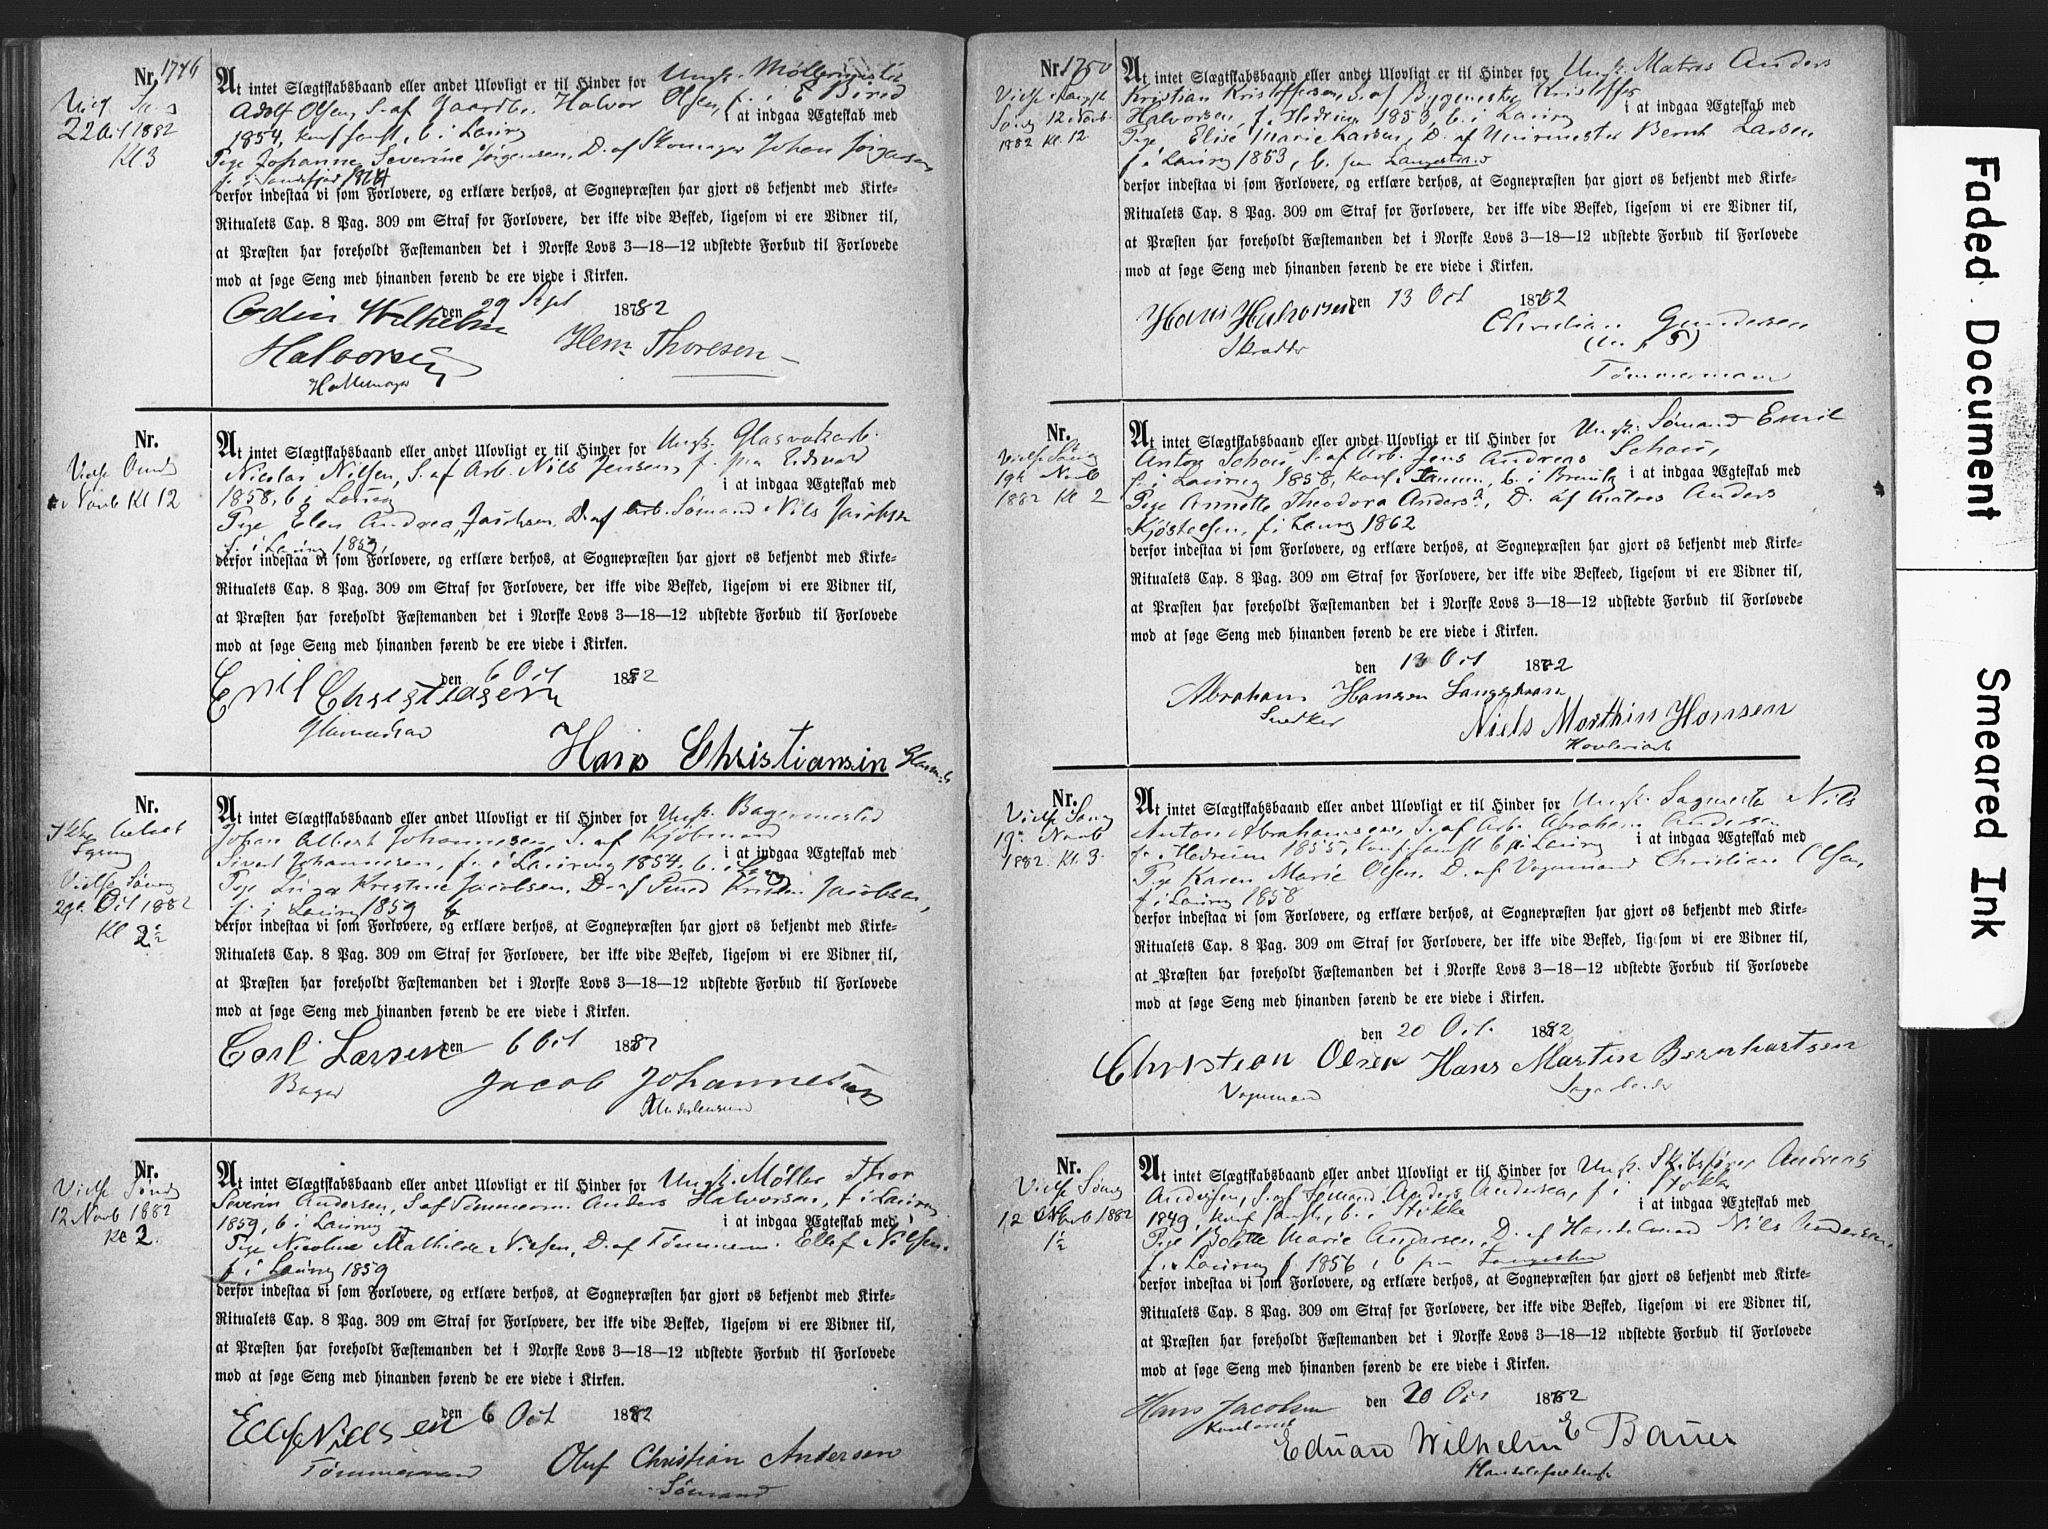 Nr. 1746
22 1882
Kl 3
At intet Slægtskabsbaand eller andet Ulovligt er til Hinder for Ungk. Møllermester
Adolf Olsen, S. af Gaardbr. Halvor Olsen, f. i Birid
1854, b. i Laurvig i at indgaa Ægteskab med
Pige Johanne Severine Jørgensen, D. af Skomager Johan Jørgensen
f. i Sandefjord
derfor indestaa vi som Forlovere, og erklære derhos, at Sognepræsten har gjort os bekjendt med Kirke-
Ritualets Cap. 8 Pag. 309 om Straf for Forlovere, der ikke vide Besked, ligesom vi ere Vidner til,
at Præsten har foreholdt Fæstemanden det i Norske Lovs 3—18—12 udstedte Forbud til Forlovede
mod at søge Seng med hinanden førend de ere viede i Kirken.
den 29 Sept 1882
Odin Wilhelm
Halvorsen
Hem Thoresen
Nr.
Kl 12
At intet Slægtskabsbaand eller andet Ulovligt er til Hinder for Ungk. Glasværksarb.
Nicolai Nilsen, S. af Arb. Nils Jensen, f. paa Eidsvold
1858, b. i Laurvig i at indgaa Ægteskab med
Pige Elen Andrea Jacobsen, D. af Arb. Sømand Nils Jacobsen
f. i Laurvig 1859,
derfor indestaa vi som Forlovere, og erklære derhos, at Sognepræsten har gjort os bekjendt med Kirke-
Ritualets Cap. 8 Pag. 309 om Straf for Forlovere, der ikke vide Besked, ligesom vi ere Vidner til,
at Præsten har foreholdt Fæstemanden det i Norske Lovs 3—18—12 udstedte Forbud til Forlovede
mod at søge Seng med hinanden førend de ere viede i Kirken.
den 6 Oct 1882
Emil Christiasen
Hans Christiansin
Nr.
Vielse Søndag
29de Oct 1882
Kl 2½
At intet Slægtskabsbaand eller andet Ulovligt er til Hinder for Ungk. Bagermester
Johan Albert Johannesen, S. af Kjøbmand
Sivert Johannesen, f. i Laurvig 1854, b. i Laurvig i at indgaa Ægteskab med
Pige Kristine Jacobsen, D. af Jacobsen,
f. i Laurvig 1859
derfor indestaa vi som Forlovere, og erklære derhos, at Sognepræsten har gjort os bekjendt med Kirke-
Ritualets Cap. 8 Pag. 309 om Straf for Forlovere, der ikke vide Besked, ligesom vi ere Vidner til,
at Præsten har foreholdt Fæstemanden det i Norske Lovs 3—18—12 udstedte Forbud til Forlovede
mod at søge Seng med hinanden førend de ere viede i Kirken.
den 6 Oct 1882
Carl Larsen
Bager
Jacob Johannesen
Nr.
Vielse Søndag
12 Novb 1882
Kl 2.
At intet Slægtskabsbaand eller andet Ulovligt er til Hinder for Ungk. Møller Thor
Severin Andersen, S. af Tømmerm. Anders Halvorsen, f. i Laurvig
1859, b. i Laurvig i at indgaa Ægteskab med
Pige Nicoline Mathilde Nielsen, D. af Tømmerm. Ellef Nilsen.
f. i Laurvig 1859
derfor indestaa vi som Forlovere, og erklære derhos, at Sognepræsten har gjort os bekjendt med Kirke-
Ritualets Cap. 8 Pag. 309 om Straf for Forlovere, der ikke vide Besked, ligesom vi ere Vidner til,
at Præsten har foreholdt Fæstemanden det i Norske Lovs 3—18—12 udstedte Forbud til Forlovede
mod at søge Seng med hinanden førend de ere viede i Kirken.
den 6 Oct 1882
Ellef Nielsen
Tømmermand
Oluf Christian Andersen
Sømand
Nr. 1750
Vielse Langest.
Sønd 12 Novb.
1882 Kl. 12
At intet Slægtskabsbaand eller andet Ulovligt er til Hinder for Ungk. Matros Anders
Kristian Kristoffersen, S. af Bygmester Kristoffer
Halvorsen, f. i Hedrum 1853, b. i Laurvig i at indgaa Ægteskab med
Pige Elise Marie Larsen, D. af Murmester Bernt Larsen
f. i Laurvig 1853, b. paa Langestrand
derfor indestaa vi som Forlovere, og erklære derhos, at Sognepræsten har gjort os bekjendt med Kirke-
Ritualets Cap. 8 Pag. 309 om Straf for Forlovere, der ikke vide Besked, ligesom vi ere Vidner til,
at Præsten har foreholdt Fæstemanden det i Norske Lovs 3—18—12 udstedte Forbud til Forlovede
mod at søge Seng med hinanden førend de ere viede i Kirken.
den 13 Oct 1882
Hans Halvorsen
Skrædder
Christian Gundersen
Tømmermand
Nr.
Vielse Søndag
19de Novb
1882 Kl. 2
At intet Slægtskabsbaand eller andet Ulovligt er til Hinder for Ungk. Sømand Emil
Anton Schou, S. af Arb. Jens Andreas Schou,
f. i Laurvig 1858, konf. i Tanum, b. i Brunla i at indgaa Ægteskab med
Pige Annette Theodora Anders, D. af Matros Anders
Kjøstelsen, f. i Laurvig 1862
derfor indestaa vi som Forlovere, og erklære derhos, at Sognepræsten har gjort os bekjendt med Kirke-
Ritualets Cap. 8 Pag. 309 om Straf for Forlovere, der ikke vide Beskeed, ligesom vi ere Vidner til,
at Præsten har foreholdt Fæstemanden det i Norske Lovs 3—18—12 udstedte Forbud til Forlovede
mod at søge Seng med hinanden førend de ere viede i Kirken.
den 13 Oct 1882
Abraham Hansen Langestrand
Snedker
Niels Marthin Hansen
Høvleriarb
Nr.
Vielse Søndag
19de Novb
1882. Kl. 3.
At intet Slægtskabsbaand eller andet Ulovligt er til Hinder for Ungk. Sagmester Nils
Anton Abrahamsen, S. af Arb. Abraham Andersen
f. i Hedrum 1855, konf. samst. b. i Laurvig i at indgaa Ægteskab med
Pige Karen Marie Olsen, D. af Vognmand Christian Olsen,
f. i Laurvig 1858
derfor indestaa vi som Forlovere, og erklære derhos, at Sognepræsten har gjort os bekjendt med Kirke-
Ritualets Cap. 8 Pag. 309 om Straf for Forlovere, der ikke vide Besked, ligesom vi ere Vidner til,
at Præsten har foreholdt Fæstemanden det i Norske Lovs 3—18—12 udstedte Forbud til Forlovede
mod at søge Seng med hinanden førend de ere viede i Kirken.
den 20 Oct. 1882
Christian Olsen
Vognmand
Hans Martin Bernhartsen
Sagarbeider
Nr.
Vielse Søndag
12 Novb 1882
1½
At intet Slægtskabsbaand eller andet Ulovligt er til Hinder for Ungk. Skibsfører Andreas
Andersen, S. af Sømand Anders Andersen, f. i Stokke
1849, konf. samst., b. i Stokke i at indgaa Ægteskab med
Pige Bolette Marie Andersen, D. af Handelsmand Nils Andersen,
f. i Laurvig 1856, b paa Langestrand
derfor indestaa vi som Forlovere, og erklære derhos, at Sognepræsten har gjort os bekjendt med Kirke-
Ritualets Cap. 8 Pag. 309 om Straf for Forlovere, der ikke vide Besked, ligesom vi ere Vidner til,
at Præsten har foreholdt Fæstemanden det i Norske Lovs 3—18—12 udstedte Forbud til Forlovede
mod at søge Seng med hinanden førend de ere viede i Kirken.
den 20 Oct 1882
Hans Jacobsen
Eduan Wilhelm E Bauer
Faded Document
Smeared Ink